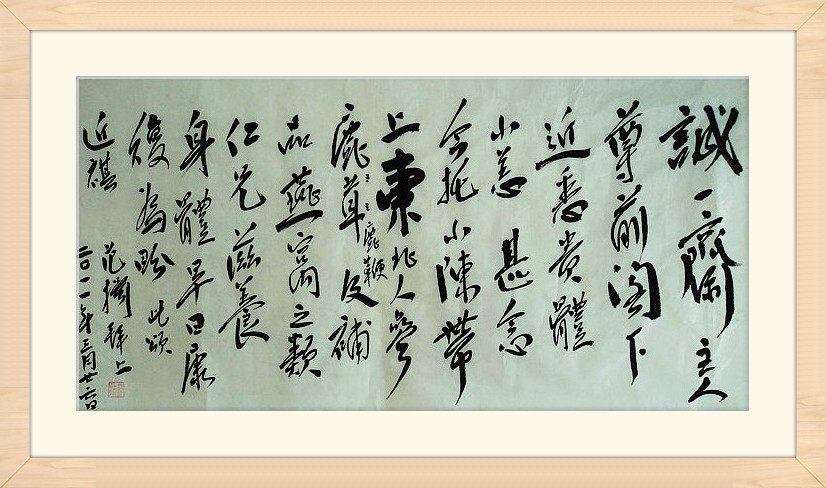 誠一齋主人
尊前閣下
近悉贵體
小恙甚念
今托小陳帶
上東北人參
鹿茸鹿鞭及補
品燕窩之類
仁兄滋養
身體早日康
復為盼此頌
近祺
范 拜上
二〇一一年三月廿六日